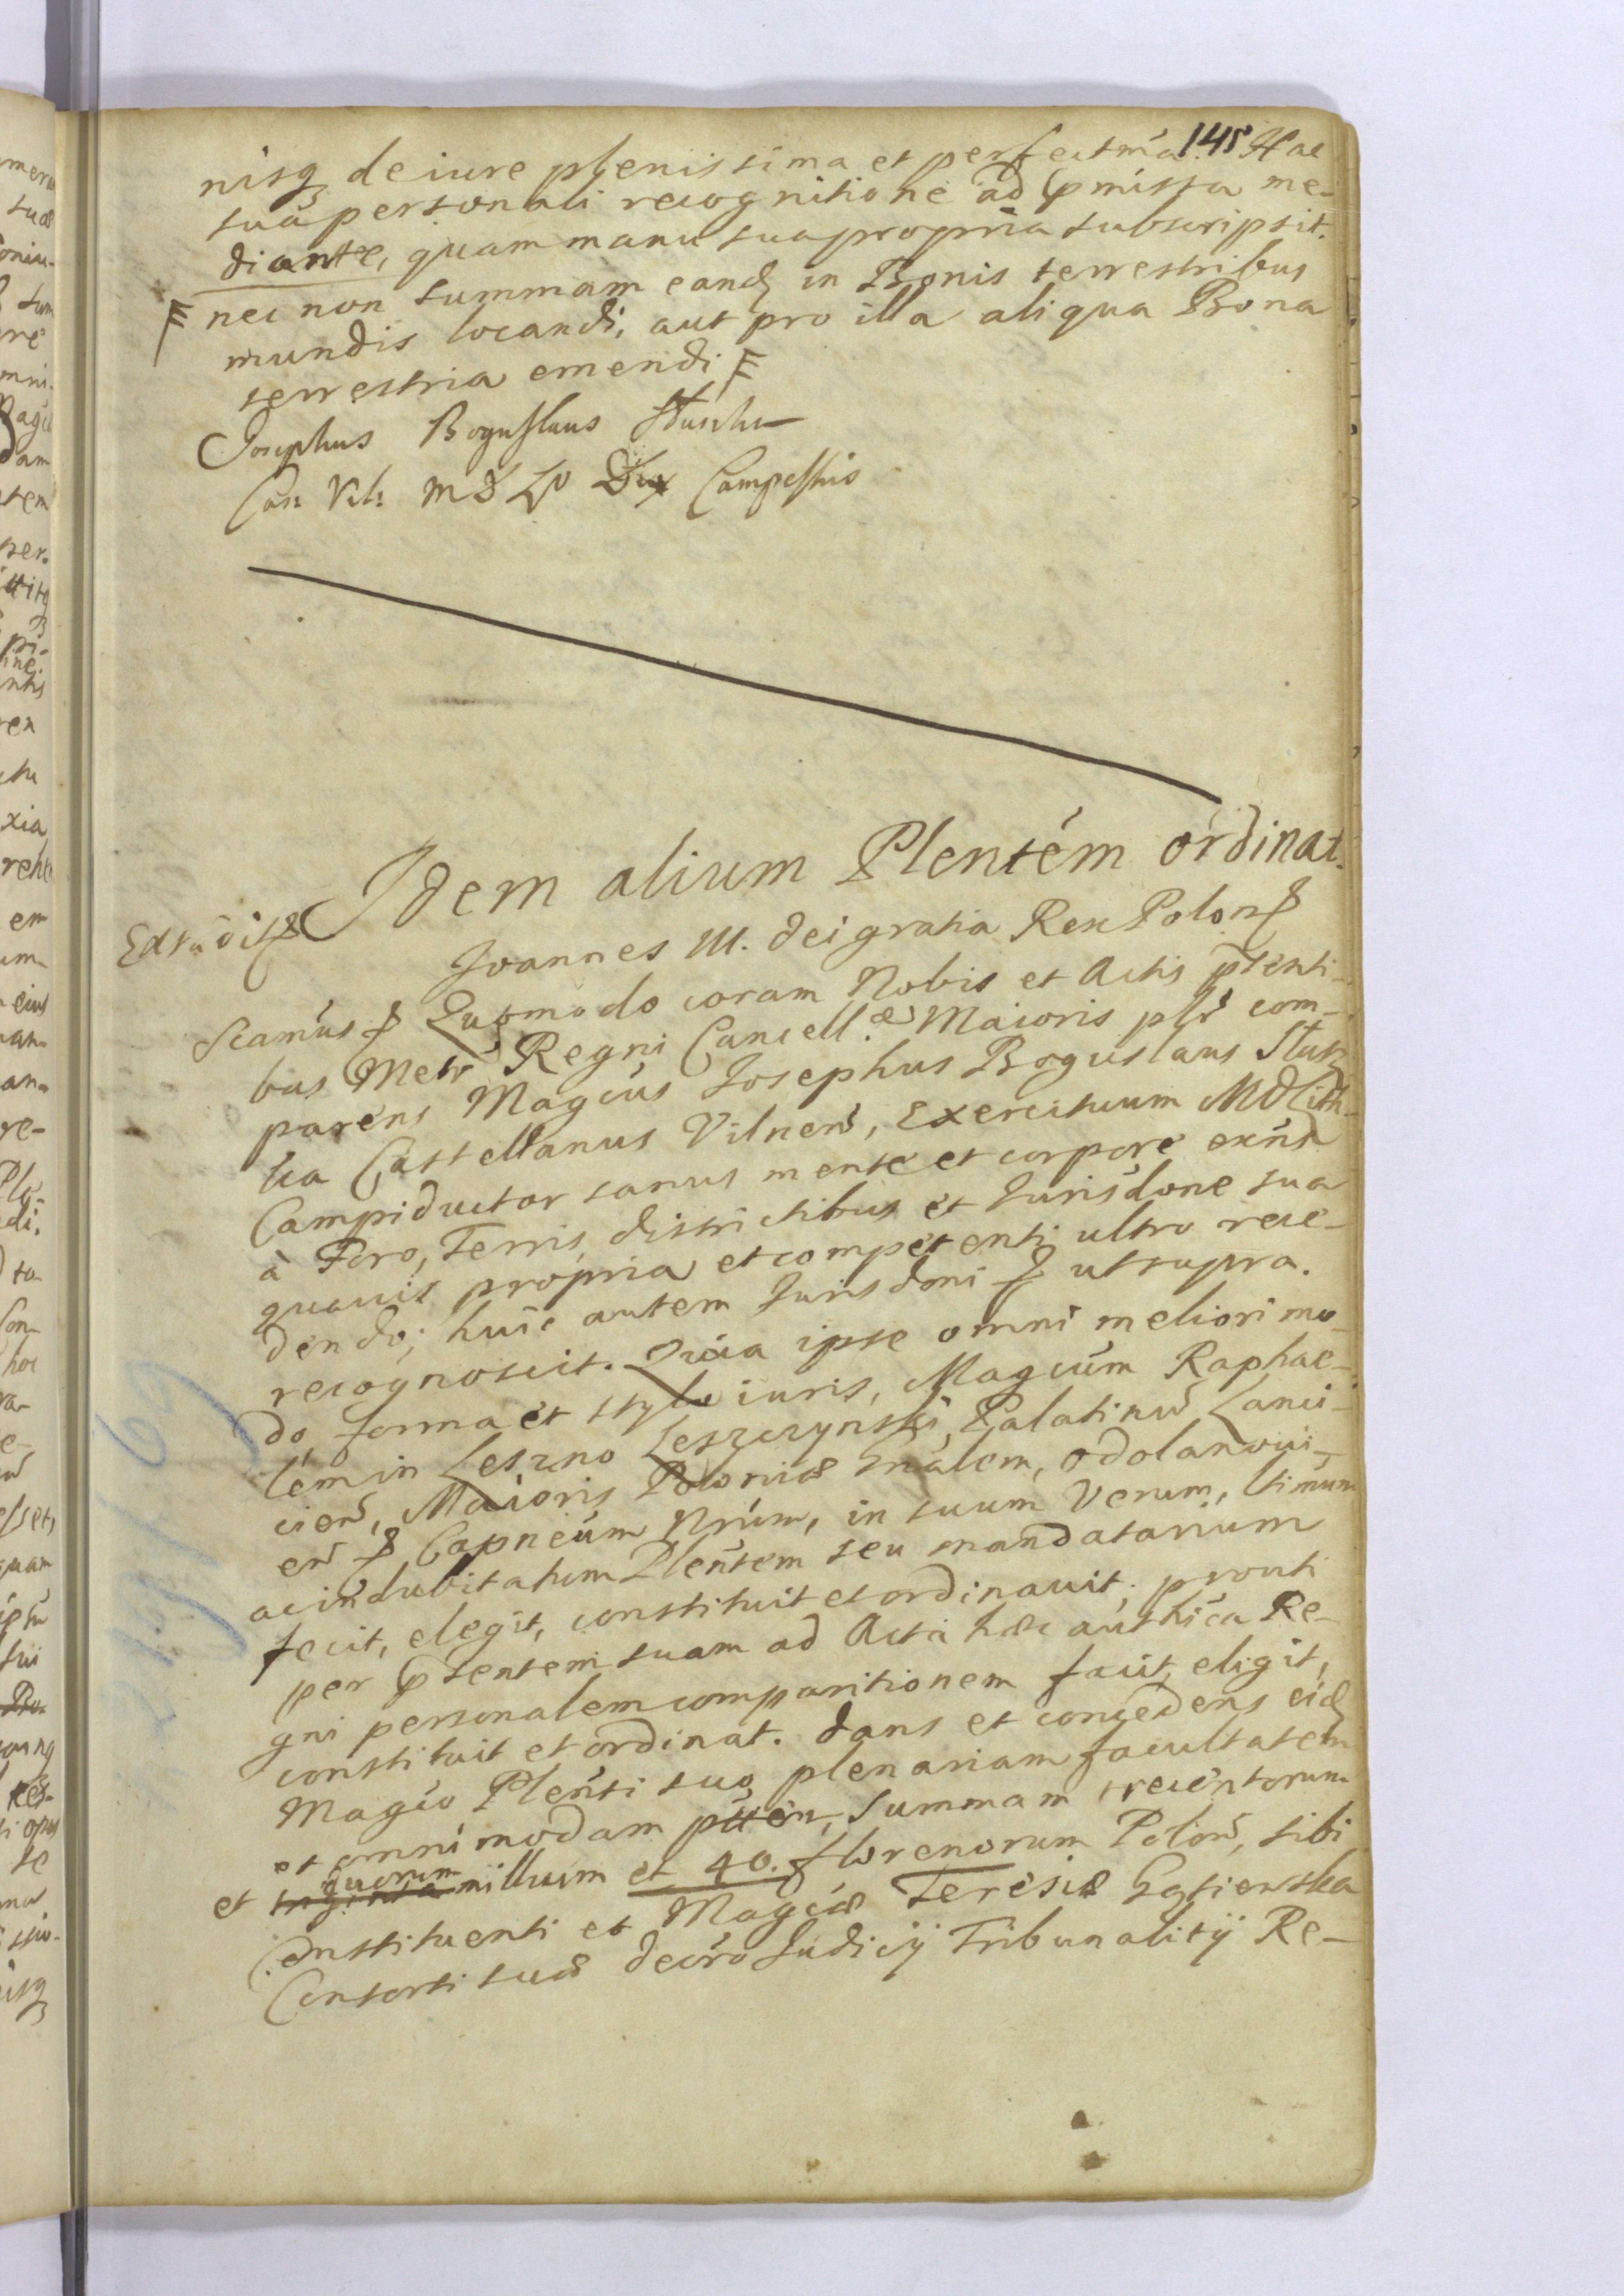 145
nisq de iure plenissima et perfectma. Hac
suà personali recognitione ad pmissa me-
diante, quam manu sua propria subscripsit.
nec non summam eand in Bonis terrestribus
mundis locandi, aut pro illa aliqua Bona
terrestria emendi
Josephus Boguslaus Sluschu
Cas: Vil: M D L D Dux Campestris
Idem alium Plentém ordinat.
Extradit
Joannes III. Dei gratia Rex Polon
Scamús Quomodo coram Nobis et Actis pñenti-
bus Metr Regni Cancell.æ Maioris plr com-
parens Magcus Josephus Boguslaus Slusz
ka Castellanus Vilnen, Exercituum MDLith
Campiductor sanus mente et corpore exñs
à Foro, Terris, districtibus et Jurisdone sua
quavis propria et competenti ultro rece-
dendo; huic autem Jurisdoni ut supra.
recognoscit. Quia ipse omni meliori mo-
do, forma et stylo iuris, Magcum Raphae-
lem in Leszno Leszczynski, Palatinu Lanci-
cien, Maioris Poloniæ Gnalem, Odolanovi-
en Capneum Nrum, in suum Verum, ltimum
ac indubitatum Plentem seu mandatarium
fecit, elegit, constituit et ordinavit; prout
per psentem suam ad Acta hæc authica Re-
gni personalem comparitionem facit, eligit,
constituit et ordinat. Dans et concedens eid
Magco Plenti suo, plenariam facultatem
et omnimodam ptten, Summam trecentorum
quorum
et triginta millium et 40. florenorum Polon, sibi
Constituenti et Magcæ Teresiæ Gosiewska
Consorti suæ decro Judicij Tribunalitij Re-